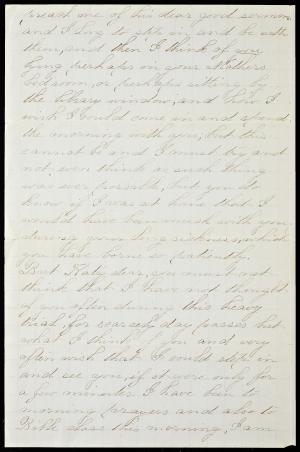 preach one of his dear good sermons
and I long to step in and be with
them, and then I think of you
lying perhaps in your Mothers
bedroom, or perhaps sitting by
the library window, and how I
wish I could come in and spend
the morning with you; but this
cannot be and I must try and
not even think as such thing
was ever possible, but you do
know if I was at home that I
would have been much with you
during your long sickness, which
you have borne so patiently.
But Katy dear, you must not
think that I have not thought
of you often during this heavy
trial, for scarsely day passes but
what I think of you and very
often wish that I could step in
and see you, if it were only for
a few minutes. I have been to
morning prayers and also to
Bible class this morning, I am